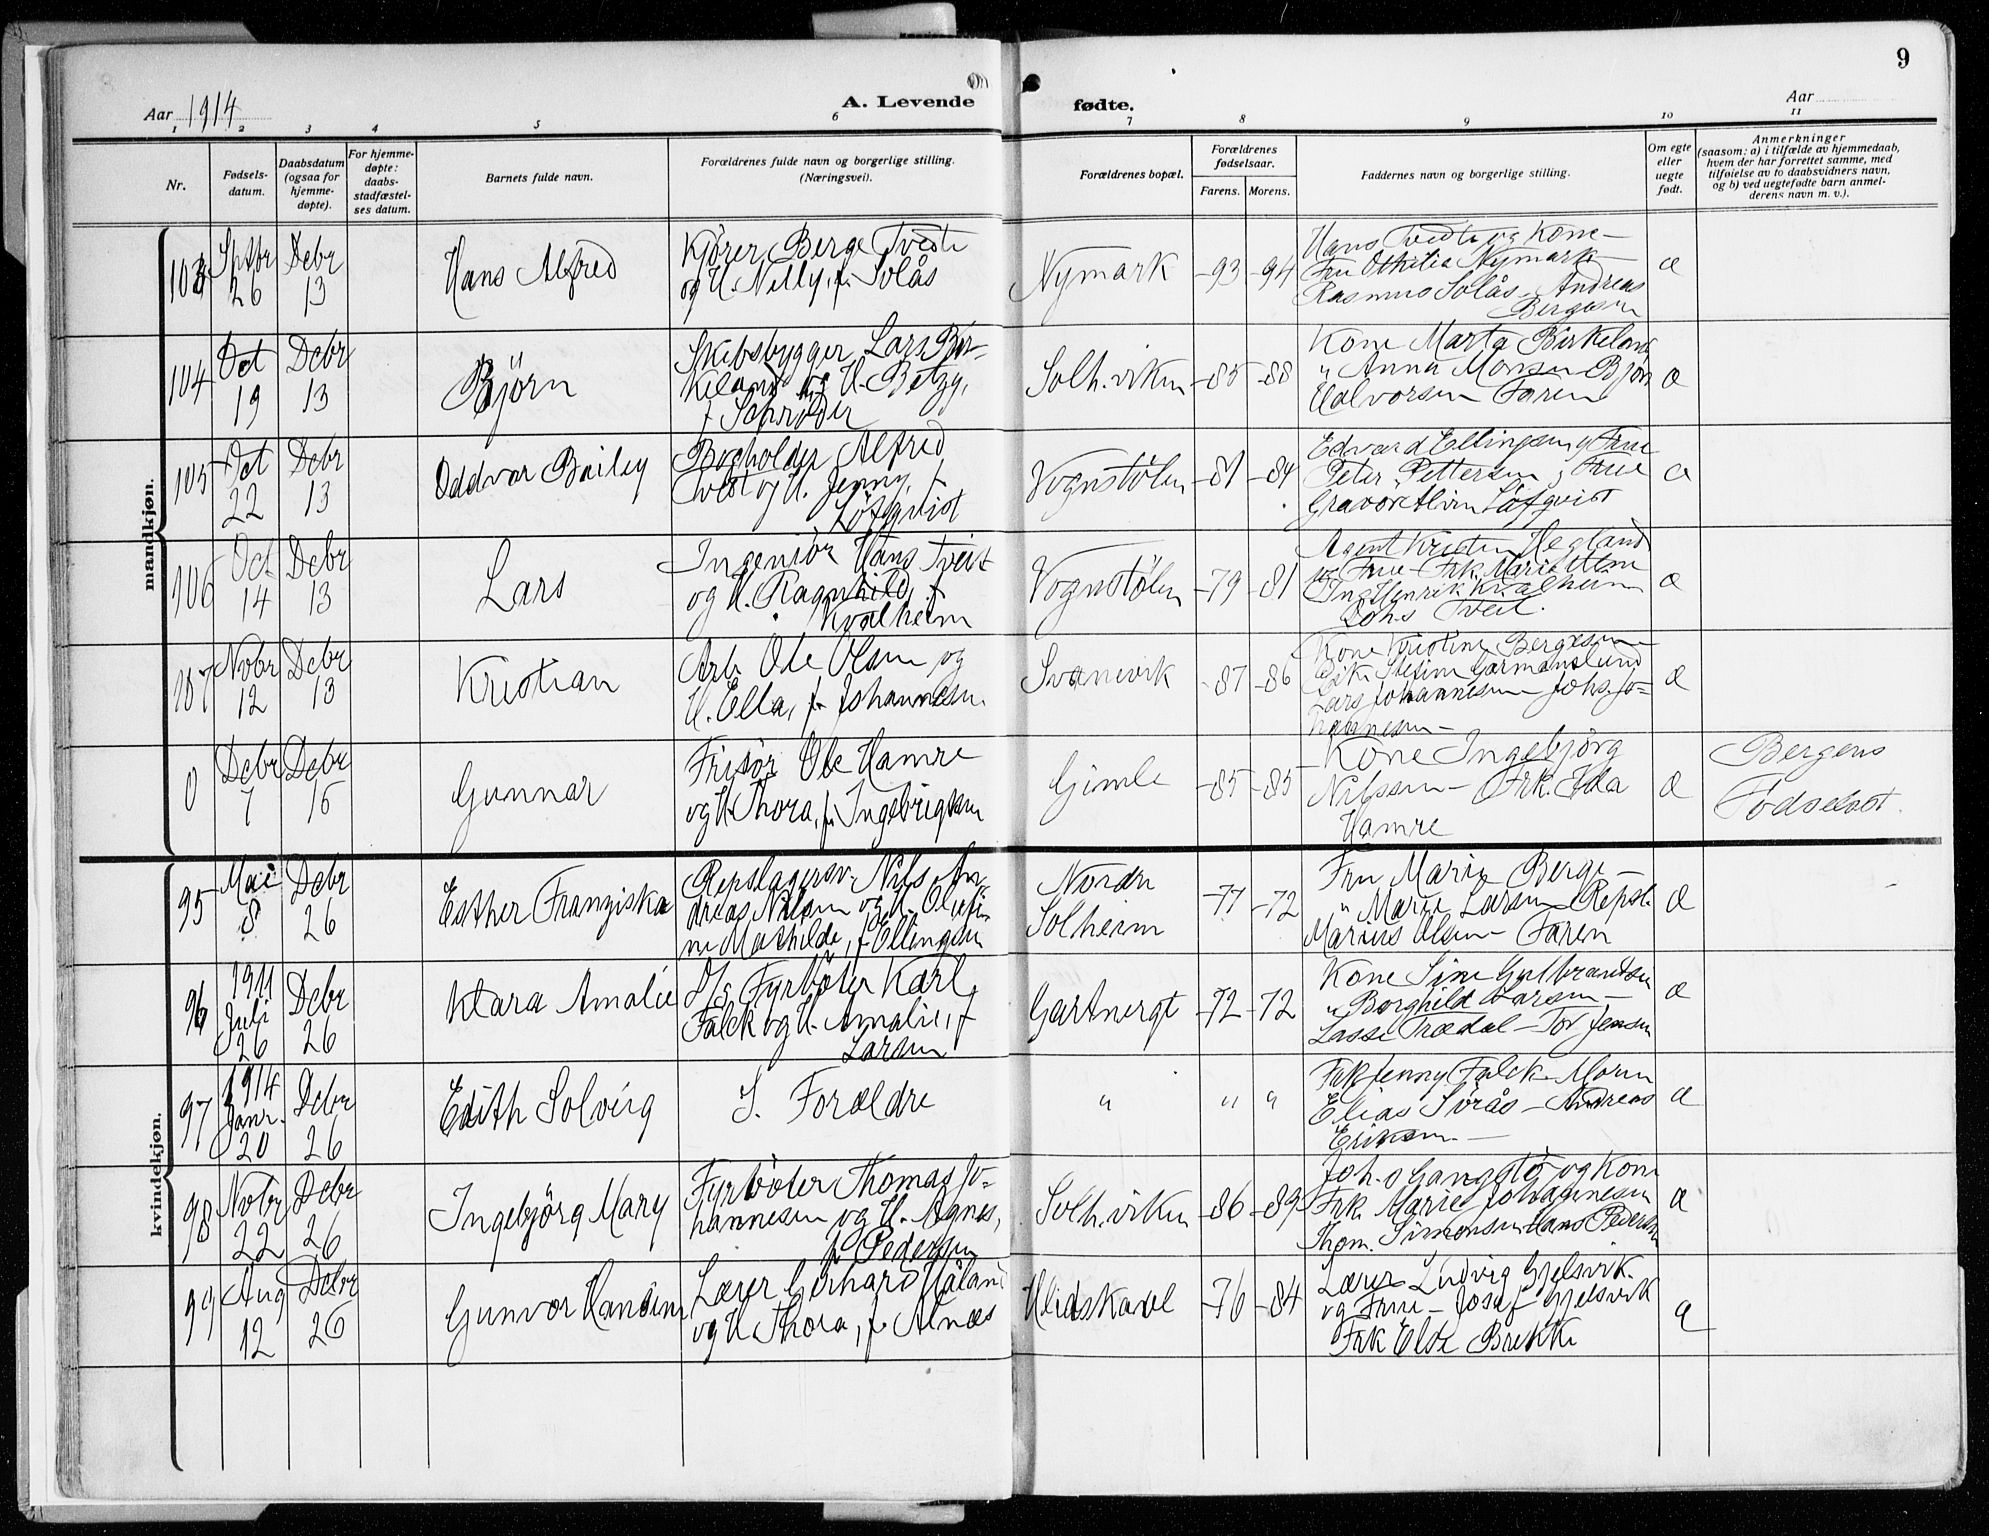 9
Aar 1914
A. Levende
fødte.
Aar
1 2 3 4 5 6 7 8 9 10 11
Nr.
Fødsels-
datum.
Daabsdatum
(ogsaa for
hjemme-
døpte).
For hjemme-
døpte:
daabs-
stadfæstel-
ses datum.
Barnets fulde navn.
Forældrenes fulde navn og borgerlige stilling.
(Næringsvei).
Forældrenes bopæl.
Forældrenes
fødselsaar.
Farens. Morens.
Faddernes navn og borgerlige stilling.
Om egte
eller
uegte
født.
Anmerkninger
(saasom: a) i tilfælde av hjemmedaab,
hvem der har forrettet samme, med
tilføielse av to daabsvidners navn,
og b) ved uegtefødte barn anmel-
derens navn m. v.).
mandkjøn.
103
Sptbr
26
Debr
13
Hans Alfred
Kjører Berge Tvedt
og H. Nelly, f. Solås
Nymark
-93 -94
Hans Tvedt og Kone -
Fru Othilia Nymark -
Rasmus Solås - Andreas
Bergesen
æ
104
Oct
19
Debr
13
Björn
Skibsbygger Lars Bir-
keland og H. Betzy,
f. Schrøder
Solh.viken
-85 -88
Kone Marta Birkeland
" Anna Monsen - Bjørn
Halvorsen - Faren
æ
105
Oct
22
Debr
13
Oddvar Bailey
Bogholder Alfred
Tvedt og H. Jenny, f.
Löfqvist
Vognstølen
-81 -84
Edvard Ellingsen og Frue
Peter Pettersen, Frue
Gravør Alvin Löfqvist
æ
106
Oct
14
Debr
13
Lars
Ingeniør Hans Tveit
og H. Ragnhild, f.
Kvalheim
Vognstølen
-79 -81
Agent Kristen Hegland
og Frue - Frk. Marie
Ing. Henrik Kvalheim
Johs Tveit.
æ
107
Novbr
12
Debr
13
Kristian
Arb. Ole Olsen og
H. Ella, f. Johannesen
Svanevik
-87 -86
Kone Kristine Bergesen
Lars Johannesen - Johs. Jo-
hannesen -
æ
0
Debr
7
Debr
16
Gunnar
Frisør Ole Hamre
og H. Thora, f. Ingebrigtsen
Gimle
-85 -85
Kone Ingebjørg
Nilssen - Frk. Ida
Hamre
æ
Bergens
Fødselsst.
kvindekjøn.
95
Mai
8
Debr
26
Esther Franziska
Repslagersv. Nils An-
dreas Nilsen og H. Olufi-
ne Mathilde, f. Ellingsen
Nordre
Solheim
-77 -72
Fru Marie Berge -
" Marie Larsen - Repsl.
Marius Olsen - Faren
æ
96
1911
Juli
26
Debr
26
Klara Amalie
D/s Fyrbøter Karl
Falck og H. Amalie, f.
Larsen
Gartnergt
-72 -72
Kone Sine Gulbrandsen
" Borghild Larsen -
Lasse Trædal - Tor Jensen
æ
97
1914
Janr.
20
Debr
26
Edith Solveig
S. Forældre
" " "
Frk Jenny Falck - Moren
Elias Sørås - Andreas
Eriksen -
æ
98
Novbr
22
Debr
26
Ingebjörg Mary
Fyrbøter Thomas Jo-
hannesen og H. Agnes,
f. Pedersen
Solh.viken
-86 -89
Joh.s Gangstø og Kone
Frk. Marie Johannesen
Thom. Simonsen - Hans Pedersen
æ
99
Aug
12
Debr
26
Gunvor Handine
Lærer Gerhard Håland
og H. Thora, f. Alnæs
Hlidskaal
-76 -84
Lærer Ludvig Gjelsvik
og Frue - Josef Gjelsvik
Frk Else Brekke
æ